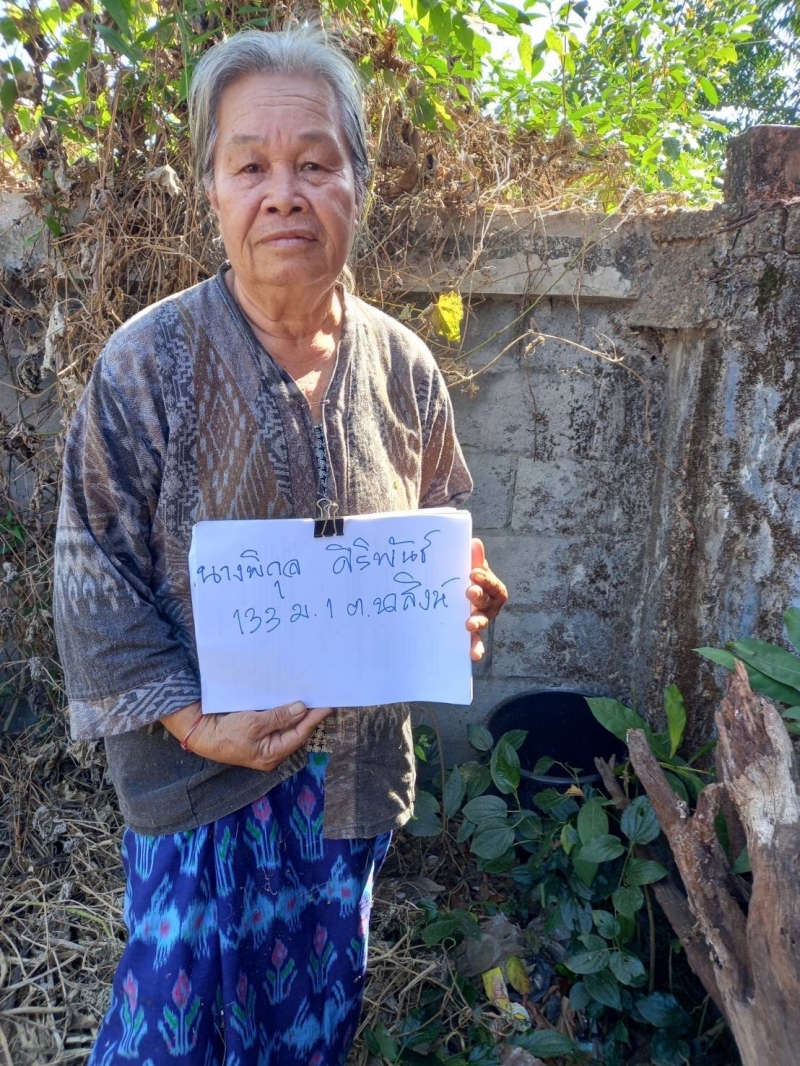 นางพิกุล ศิริพันธ์
133 ม.1 ต.นาสิงห์